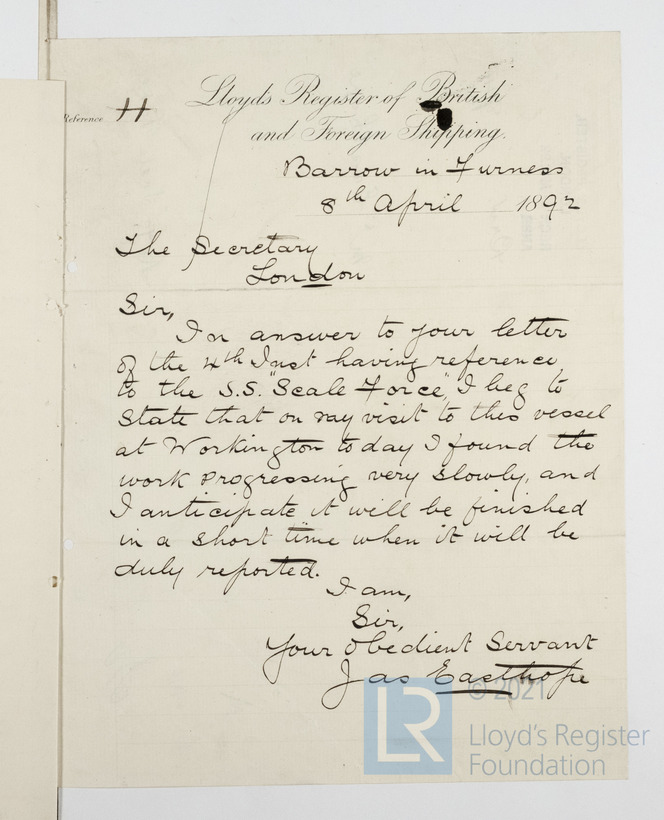 Lloyd's Register of British
and Foreign Shipping.
Reference H
Barrow in Furness
8th April 1892
The Secretary
London
Sir,
In answer to your letter
of the 4th Inst having reference
to the S.S. "Scale Force", I beg to
state that on my visit to this vessel
at Workington today I found the
work progressing very slowly, and
I anticipate it will be finished
in a short time when it will be
duly reported.
I am,
Sir,
Your Obedient Servant
Jas Easthope
© 2021
LR
Lloyd's Register
Foundation